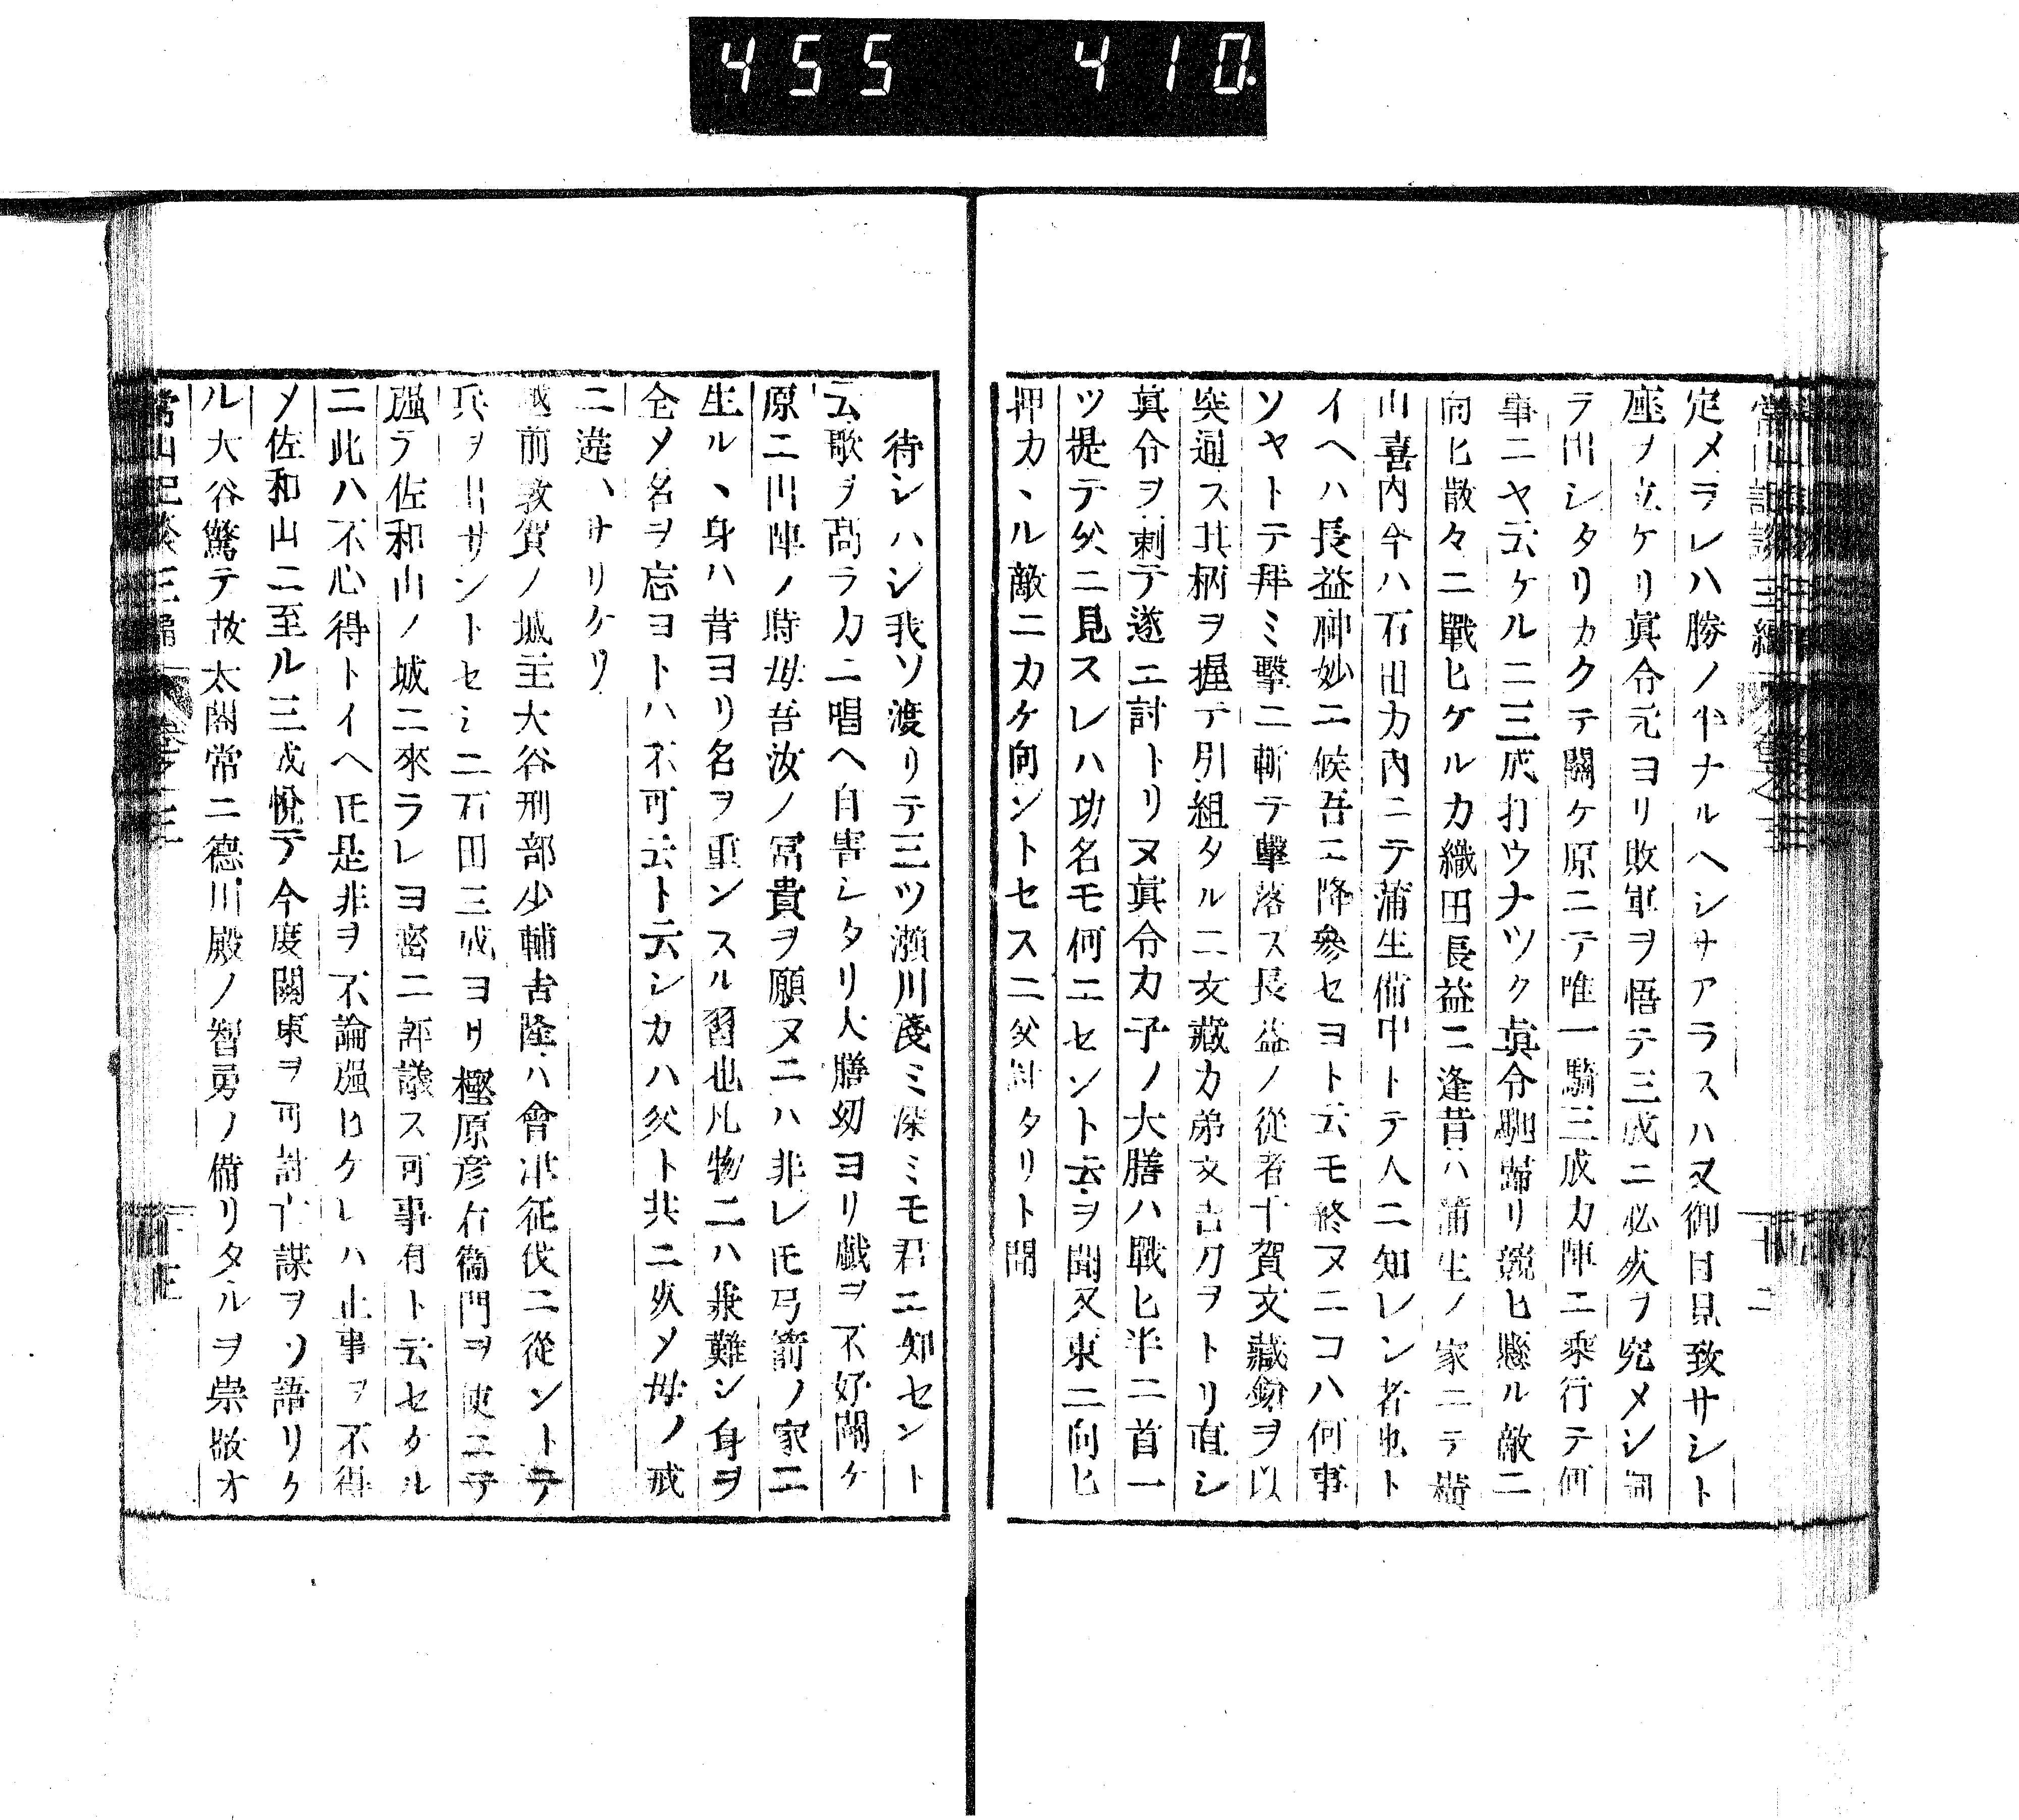 455 410
定メラレハ勝ノ小ナルヘシサアラスハ又御目見致サシト
座ヲ立ケリ眞令元ヨリ敗軍ヲ悟テ三成ニ必死ヲ究メシ詞
ヲ出シタリカクテ關ケ原ニテ唯一騎三成カ陣ニ乘行テ何
事ニヤ云ケルニ三成打ウナツク眞令馳歸リ競ヒ懸ル敵ニ
向ヒ散々ニ戰ヒケルカ織田長益ニ逢昔ハ蒲生ノ家ニテ横
山喜内今ハ石田カ内ニテ蒲生備中トテ人ニ知レン者也ト
イヘハ長益神妙ニ候吾ニ降參セヨト云モ終ヌニコハ何事
ソヤトテ拜ミ擊ニ斬テ擊落ス長益ノ從者千賀文藏鎗ヲ以
突通ス其柄ヲ握テ引組タルニ文藏カ弟文吉刀ヲトリ直シ
眞令ヲ刺テ遂ニ討トリヌ眞令カ子ノ大膳ハ戰ヒ半ニ首一
ツ提テ父ニ見スレハ功名モ何ニセント云ヲ聞又東ニ向ヒ
押カヽル敵ニカケ向ントセスニ父討タリト聞
待レハシ我ソ渡リテ三ツ瀬川淺ミ深ミモ君ニ知セント
云歌ヲ高ラカニ唱ヘ自害レタリ大膳幼ヨリ戯ヲ不好關ケ
原ニ川陣ノ時母吾汝ノ冨貴ヲ願ヌニハ非レ𪜈弓箭ノ家ニ
生ルヽ身ハ昔ヨリ名ヲ重ンスル習也凡物二ハ兼難シ身ヲ
全メ名ヲ忘ヨトハ不可云ト云シカハ父ト共ニ死メ母ノ戒
ニ違ハサリケリ
越前敦賀ノ城主大谷刑部少輔吉隆ハ會津征伐ニ從ントテ
兵ヲ出サントセシニ石田三成ヨリ樫原彦右衞門ヲ使ニテ
强テ佐和山ノ城ニ來ラレヨ密ニ評議ス可事有ト云セケル
ニ此ハ不心得トイヘ𪜈是非ヲ不論强ヒケレハ止事ヲ不得
メ佐和山ニ至ル三成悅テ今度關東ヲ可討亡謀ヲソ語リケ
ル大谷驚テ故太閤常ニ德川殿ノ智勇ノ備リタルヲ崇敬オ
常山紀談三編 卷之三 十三